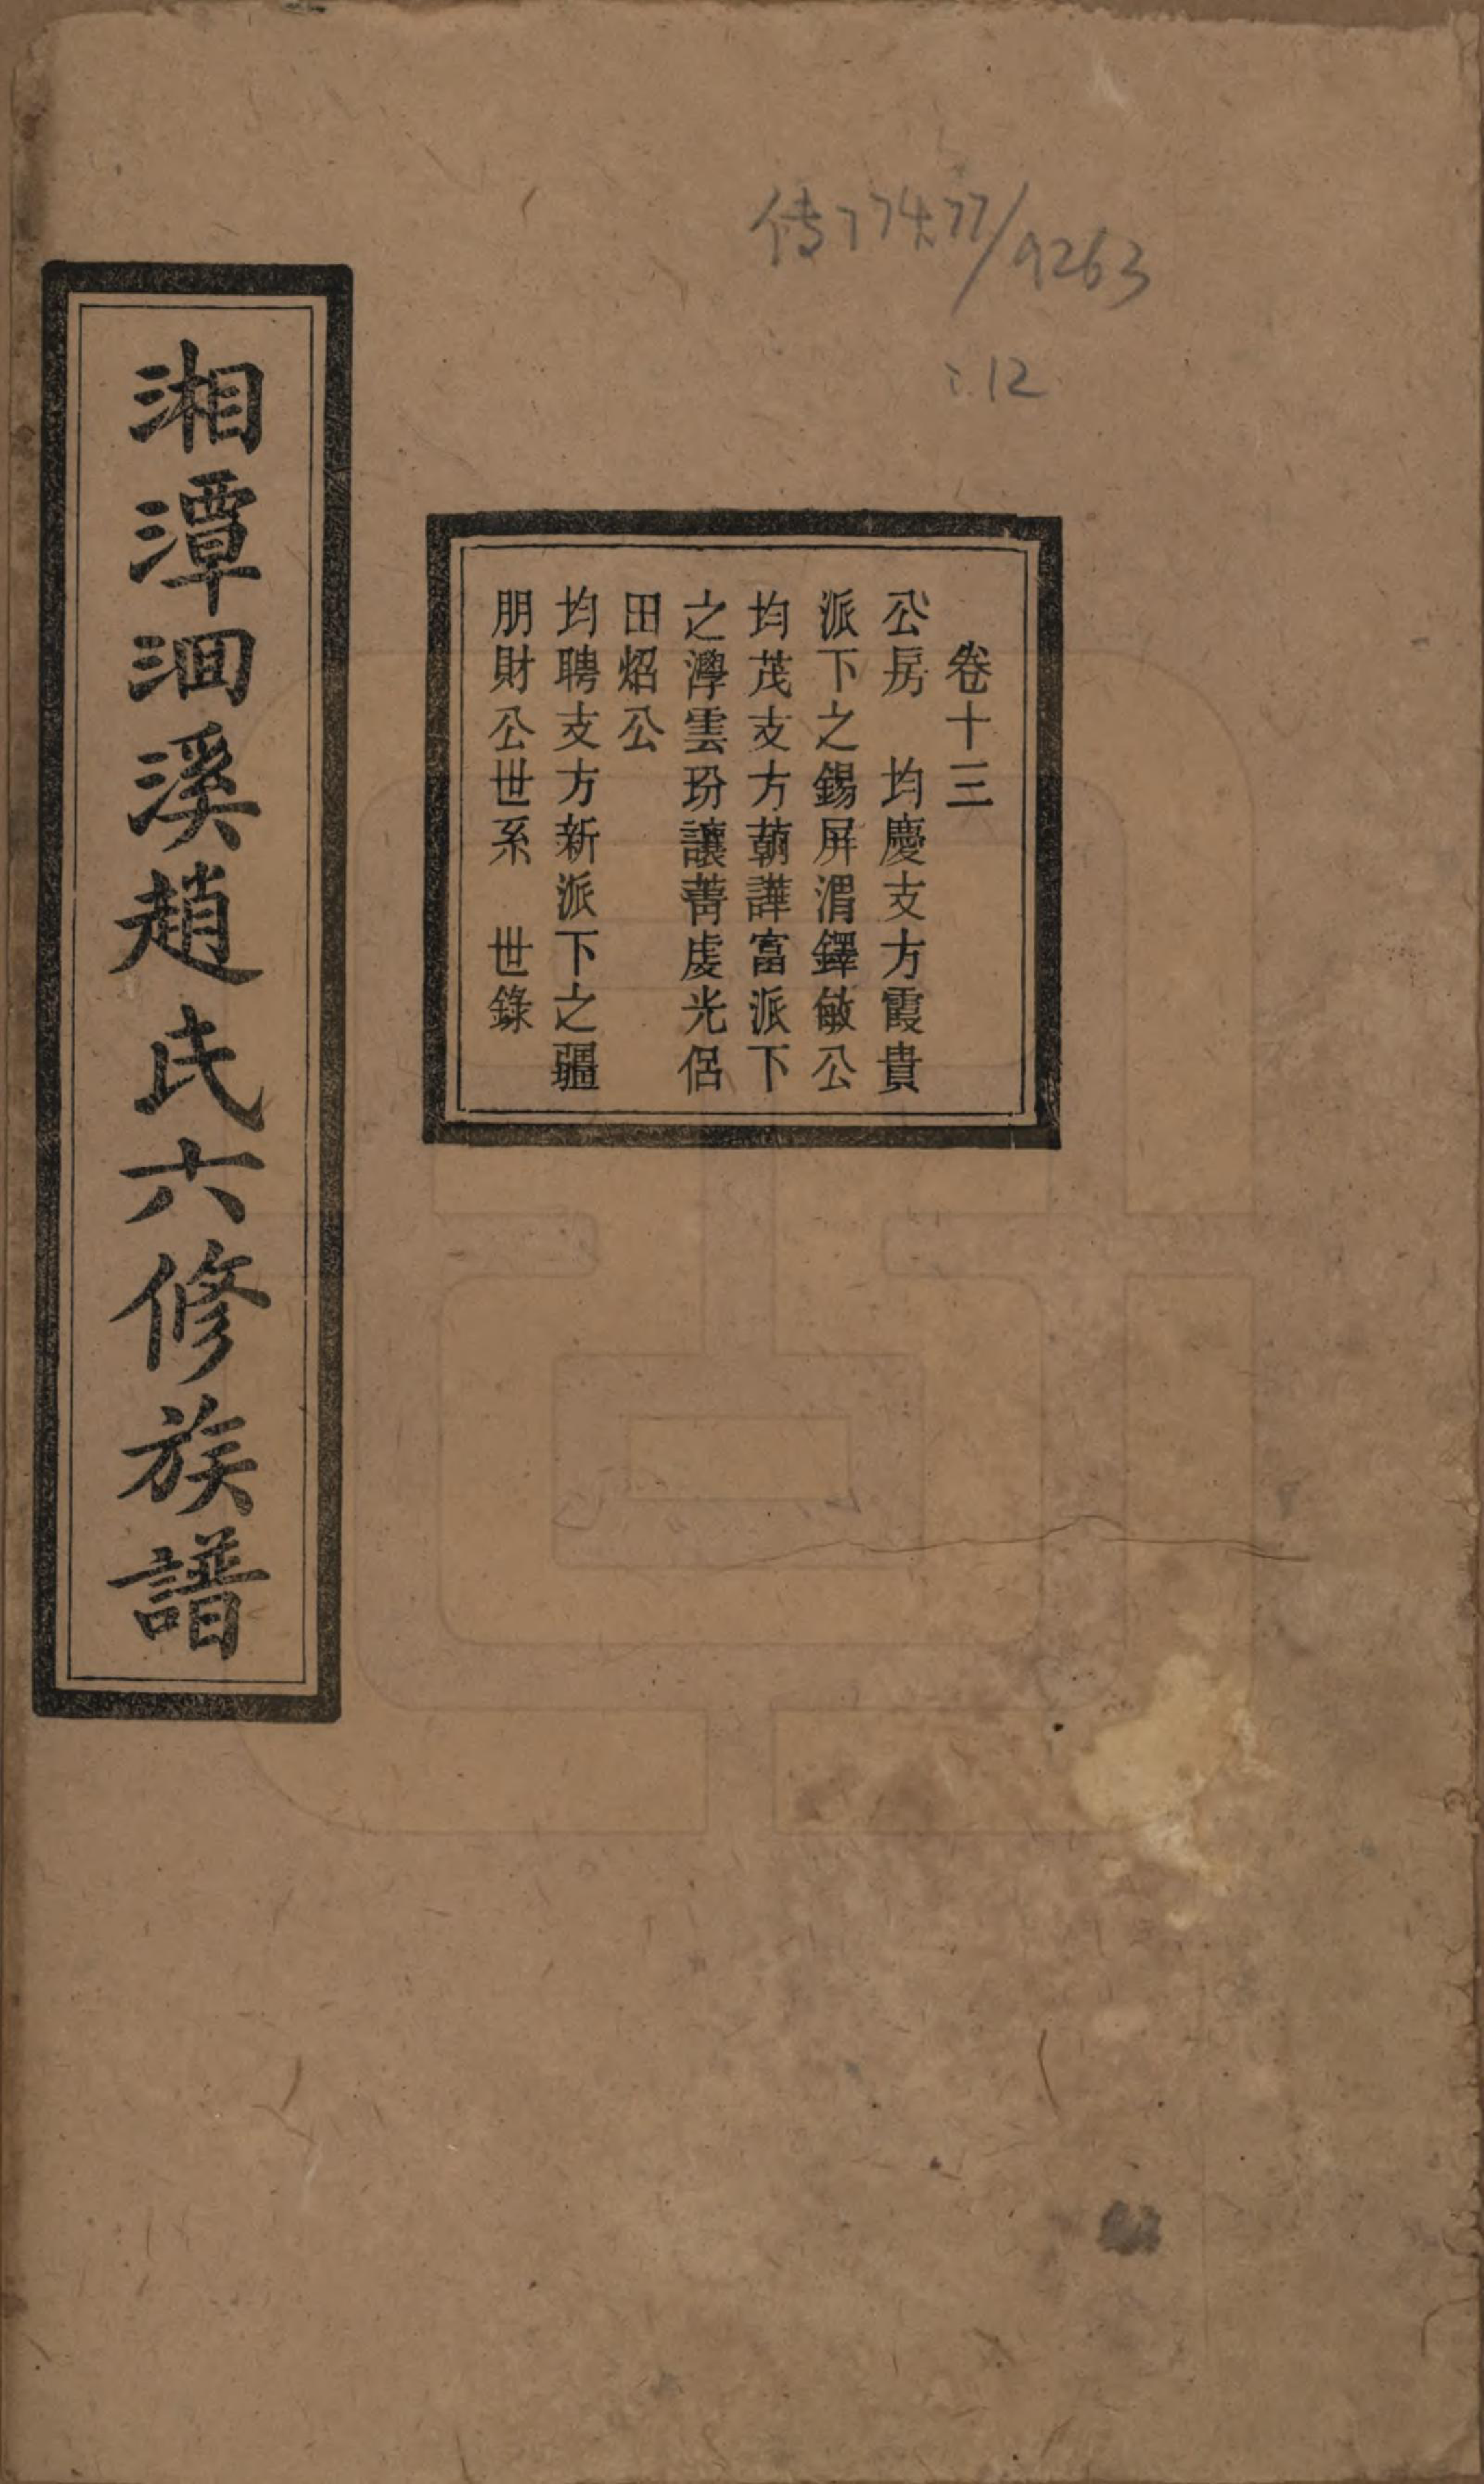 传774.77/9263
:.12
卷十三
公房　均慶支方霞貴
派下之錫屏渭鐸敏公
均茂支方萌譁富派下
之澤雲玢讓菁虔光侶
田炤公
均聘支方新派下之疆
朋財公世系　世錄
湘潭洄溪趙氏六修族譜